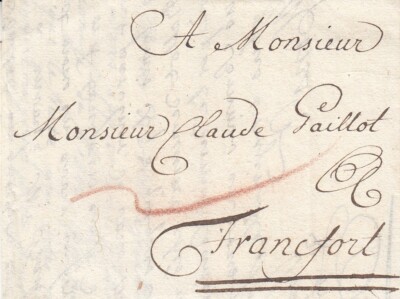 A Monsieur
Monsieur Claude Gaillot
à
Francfort